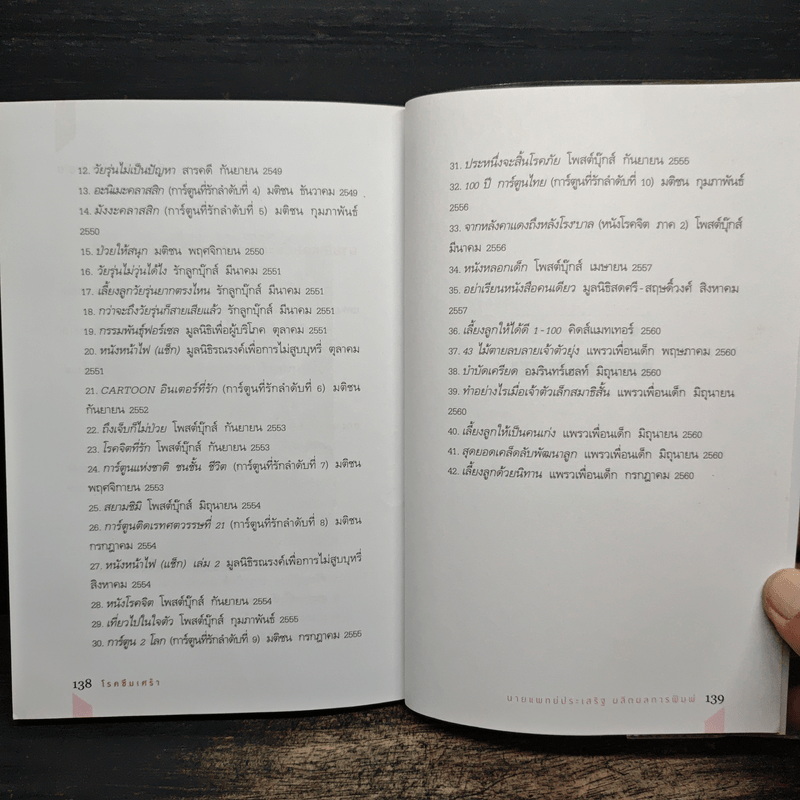 12. วัยรุ่นไม่เป็นปัญหา สารคดี กันยายน 2549
13. อะนิเมะคลาสสิก (การ์ตูนที่รักลำดับที่ 4) มติชน ธันวาคม 2549
14. มังงะคลาสสิก (การ์ตูนที่รักลำดับที่ 5) มติชน กุมภาพันธ์
2550
15. ป่วยให้สนุก มติชน พฤศจิกายน 2550
16. วัยรุ่นไม่วุ่นได้ไง รักลูกบุ๊กส์ มีนาคม 2551
17. เลี้ยงลูกวัยรุ่นยากตรงไหน รักลูกบุ๊กส์ มีนาคม 2551
18. กว่าจะถึงวัยรุ่นก็สายเสียแล้ว รักลูกบุ๊กส์ มีนาคม 2551
19. กรรมพันธุ์ฟอร์เซล มูลนิธิเพื่อผู้บริโภค ตุลาคม 2551
20. หนังหน้าไฟ (แช็ก) มูลนิธิรณรงค์เพื่อการไม่สูบบุหรี่ ตุลาคม
2551
21. CARTOON อินเตอร์ที่รัก (การ์ตูนที่รักลำดับที่ 6) มติชน
กันยายน 2552
22. ถึงเจ็บก็ไม่ป่วย โพสต์บุ๊กส์ กันยายน 2553
23. โรคจิตที่รัก โพสต์บุ๊กส์ กันยายน 2553
24. การ์ตูนแห่งชาติ ชนชั้น ชีวิต (การ์ตูนที่รักลำดับที่ 7) มติชน
พฤศจิกายน 2553
25. สยามซิมิ โพสต์บุ๊กส์ มิถุนายน 2554
26. การ์ตูนติดเรทศตวรรษที่ 21 (การ์ตูนที่รักลำดับที่ 8) มติชน
กรกฎาคม 2554
27. หนังหน้าไฟ (แช็ก) เล่ม 2 มูลนิธิรณรงค์เพื่อการไม่สูบบุหรี่
สิงหาคม 2554
28. หนังโรคจิต โพสต์บุ๊กส์ กันยายน 2554
29. เที่ยวไปในใจตัว โพสต์บุ๊กส์ กุมภาพันธ์ 2555
30. การ์ตูน 2 โลก (การ์ตูนที่รักลำดับที่ 9) มติชน กรกฎาคม 2555
138 โรคซึมเศร้า
31. ประหนึ่งจะสิ้นโรคภัย โพสต์บุ๊กส์ กันยายน 2555
32. 100 ปี การ์ตูนไทย (การ์ตูนที่รักลำดับที่ 10) มติชน กุมภาพันธ์
2556
33. จากหลังคาแดงถึงหลังโรง'บาล (หนังโรคจิต ภาค 2) โพสต์บุ๊กส์
มีนาคม 2556
34. หนังหลอกเด็ก โพสต์บุ๊กส์ เมษายน 2557
35. อย่าเรียนหนังสือคนเดียว มูลนิธิสดศรี-สฤษดิ์วงศ์ สิงหาคม
2557
36. เลี้ยงลูกให้ได้ดี 1-100 คิดส์แมทเทอร์ 2560
37. 43 ไม้ตายสบลายเจ้าตัวยุ่ง แพรวเพื่อนเด็ก พฤษภาคม 2560
38. บำบัดเครียด อมรินทร์เฮลท์ มิถุนายน 2560
39. ทำอย่างไรเมื่อเจ้าตัวเล็กสมาธิสั้น แพรวเพื่อนเด็ก มิถุนายน
2560
40. เลี้ยงลูกให้เป็นคนเก่ง แพรวเพื่อนเด็ก มิถุนายน 2560
41. สุดยอดเคล็ดลับพัฒนาลูก แพรวเพื่อนเด็ก มิถุนายน 2560
42. เลี้ยงลูกด้วยนิทาน แพรวเพื่อนเด็ก กรกฎาคม 2560
นายแพทย์ประเสริฐ ผลิตผลการพิมพ์ 139